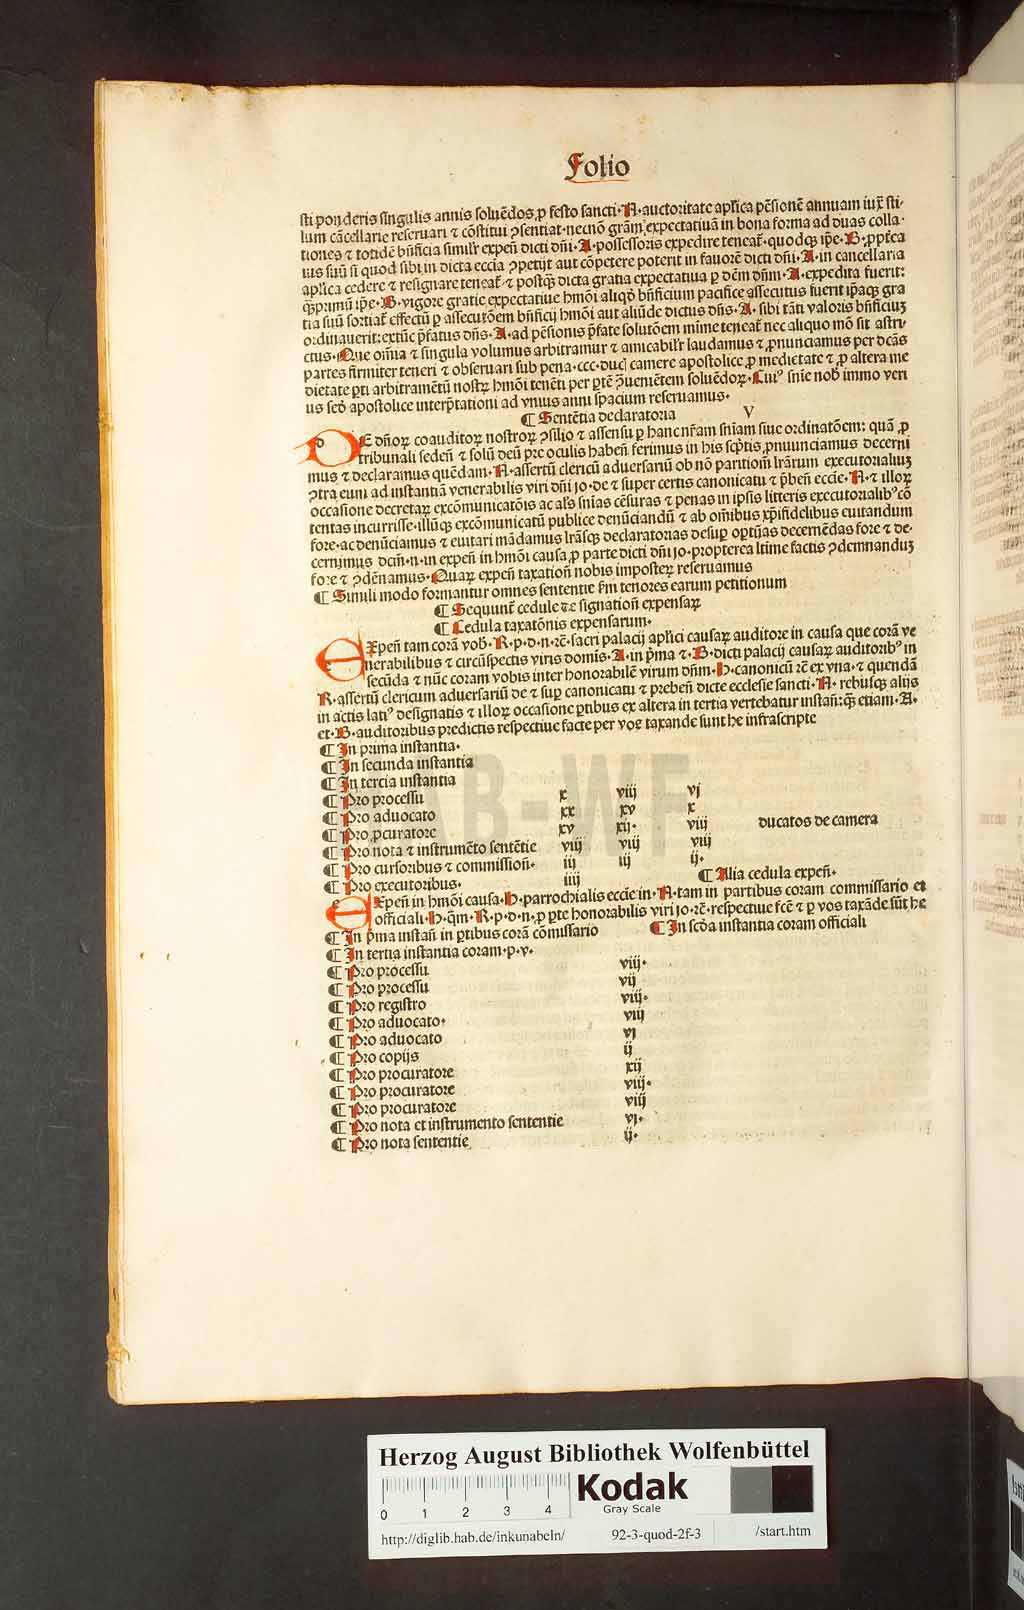 Folio
sti ponderis singulis annis soluēdos ꝓ festo sancti · N · auctoritate apl̄ica pēsionē annuam iux̄ sti-
lum cācellarie reseruari ⁊ cōstitui ꝯsentiat · necnō grām̄ expectatiuā in bona forma ad duas colla-
tiones ⁊ totidē bn̄ficia simil̄r expen̄ dicti dn̄i · A · possessoris expedire teneat̄ · quodqꝫ ip̄e · B · ꝓpt̄ea
ius suū si quod sibi in dicta eccīa ꝯpetijt aut cōpetere poterit in fauorē dicti dn̄i · A · in cancellaria
apl̄ica cedere ⁊ resignare teneat̄ ⁊ postqꝫ dicta gratia expectatiua ꝑ dēm dn̄m · A · expedita fuerit:
qꝫprimū ip̄e · B · vigore gratie expectatiue hmōi aliqd̄ bn̄ficium pacifice assecutus fuerit ip̄aqꝫ gra
tia suū sortiat̄ effectū ꝑ assecutōem bn̄ficij hmōi aut aliūde dictus dn̄s · A · sibi tāti valoris bn̄ficiuꝫ
ordinauerit: extūc p̄fatus dn̄s · A · ad pēsionis p̄fate solutōem mīme teneat̄ nec aliquo mō sit astri-
ctus · Que om̄ia ⁊ singula volumus arbitramur ⁊ amicabil̄r laudamus ⁊ ꝓnunciamus per dcās
partes firmiter teneri ⁊ obseruari sub pena · ccc · duc̄ camere apostolice ꝓ medietate ⁊ ꝓ altera me
dietate ꝑti arbitramētū nostꝝ hmōi tenēti per ꝑtē ꝯueniētem soluēdoꝝ · Cuiꝰ sn̄ie nob̄ immo veri
us sedi apostolice interp̄tationi ad vnius anni spacium reseruamus ·
¶ Sentētia declaratoria V
DE dn̄oꝝ coauditoꝝ nostroꝝ ꝯsilio ⁊ assensu ꝑ hanc nr̄am sn̄iam siue ordinatōem: quā ꝓ
tribunali seden̄ ⁊ solū deū p̄re oculis haben̄ ferimus in his scp̄tis ꝓnunciamus decerni
mus ⁊ declaramus quēdam · N · assertū clericū aduersariū ob nō paritiom̄ lr̄arum executorialiuꝫ
ꝯtra eum ad instantiā venerabilis viri dn̄i jo · de ⁊ super certis canonicatu ⁊ p̄ben̄ eccīe · N · ⁊ illoꝝ
occasione decretaꝝ excōmunicatōis ac al̄s sn̄ias cēsuras ⁊ penas in ipsis litteris executorialibꝰ cō
tentas incurrisse · illūqꝫ excōmunicatū publice denūciandū ⁊ ab om̄ibus xp̄ifidelibus euitandum
fore · ac denūciamus ⁊ euitari mādamus lr̄asqꝫ declaratorias desuꝑ oꝑtūas decernēdas fore ⁊ de-
cernimus dcm̄ · n · in expen̄ in hmōi causa ꝓ parte dicti dn̄i jo · propterea l̄time factis ꝯdemnanduꝫ
fore ⁊ ꝯdēnamus · Quaꝝ expen̄ taxation̄ nobis imposteꝝ reseruamus
¶ Simili modo formantur omnes sententie s̄m tenores earum petitionum
¶ Sequunt̄ cedule ⁊c̄ signation̄ expensaꝝ
¶ Cedula taxatōnis expensarum ·
EXpen̄ tam corā vob̄ · R · p · d · n · rc̄ · sacri palacij apl̄ici causaꝝ auditore in causa que corā ve
nerabilibus ⁊ circūspectis viris domīs · A · in p̄ma ⁊ · B · dicti palacij causaꝝ auditoribꝰ in
secūda ⁊ nūc coram vobis inter honorabilē virum dn̄m · H · canonicū rc̄ ex vna · ⁊ quendā
R · assertū clericum aduersariū de ⁊ suꝑ canonicatu ⁊ preben̄ dicte ecclesie sancti · N · rebusqꝫ alijs
in actis latiꝰ designatis ⁊ illoꝝ occasione ꝑtibus ex altera in tertia vertebatur instan̄: qꝫ etiam · A ·
et · B · auditoribus predictis respectiue facte per vos taxande sunt he infrascripte
¶ In prima instantia ·
¶ In secunda instantia
¶ In tercia instantia
¶ Pro processu x viij vj
¶ Pro aduocato xx xv x
¶ Pro ꝓcuratore xv xij · viij ducatos de camera
¶ Pro nota ⁊ instrumēto sentētie viij viij viij
¶ Pro cursoribus ⁊ commission̄ · iij iij ij ·
¶ Pro executoribus · iiij ¶ Alia cedula expen̄ ·
EXpen̄ in hmōi causa · H · parrochialis eccīe in · N · tam in partibus coram commissario et
officiali · H · qm̄ · R · p · d · n · ꝓ ꝑte honorabilis viri jo · rc̄ · respectiue fcē ⁊ ꝑ vos taxāde sūt he
¶ In p̄ma instan̄ in ꝑtibus corā cōmissario ¶ In scd̄a instantia coram officiali
¶ In tertia instantia coram · p · v ·
¶ Pro processu viij ·
¶ Pro processu vij
¶ Pro registro viij ·
¶ Pro aduocato · viij
¶ Pro aduocato vj
¶ Pro copijs ij
¶ Pro procuratore xij
¶ Pro procuratore viij ·
¶ Pro procuratore viij
¶ Pro nota et instrumento sententie vj ·
¶ Pro nota sententie ij ·
HAB-WF
Herzog August Bibliothek Wolfenbüttel
0 1 2 3 4 Kodak
Gray Scale
http://diglib.hab.de/inkunabeln/ 92-3-quod-2f-3 /start.htm